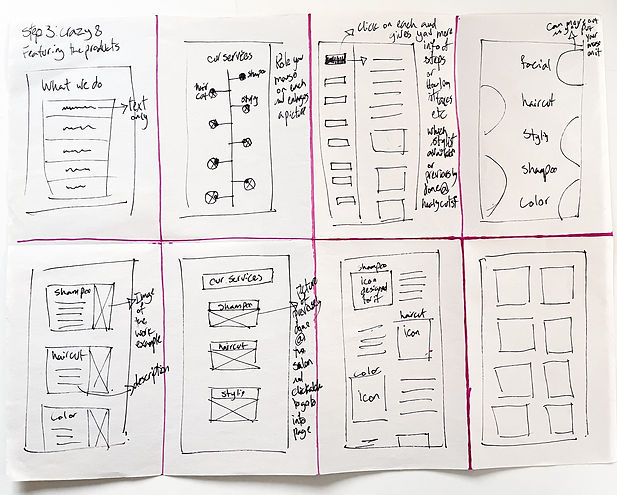 Step 3: crazy 8
Featuring the products
What we do
text
only
our services
shampoo
hair
cut
styling
Role your
mouse
on each
and enlarges
a picture
Click on each and
gives you more
info of
steps
or
How long
it takes
etc
which
stylist
available
or
previously
done@
Can move out
as you put
your
mouse
on it
facial
haircut
Styling
shampoo
Color
shampoo
Image
of
the
work
example
haircut
description
color
our services
shampoo
haircut
styling
Picture
of
previously
done
@
the
Salon
and
clickable
to go to
info
page
shampoo
icon
designed
for it
haircut
icon
color
icon